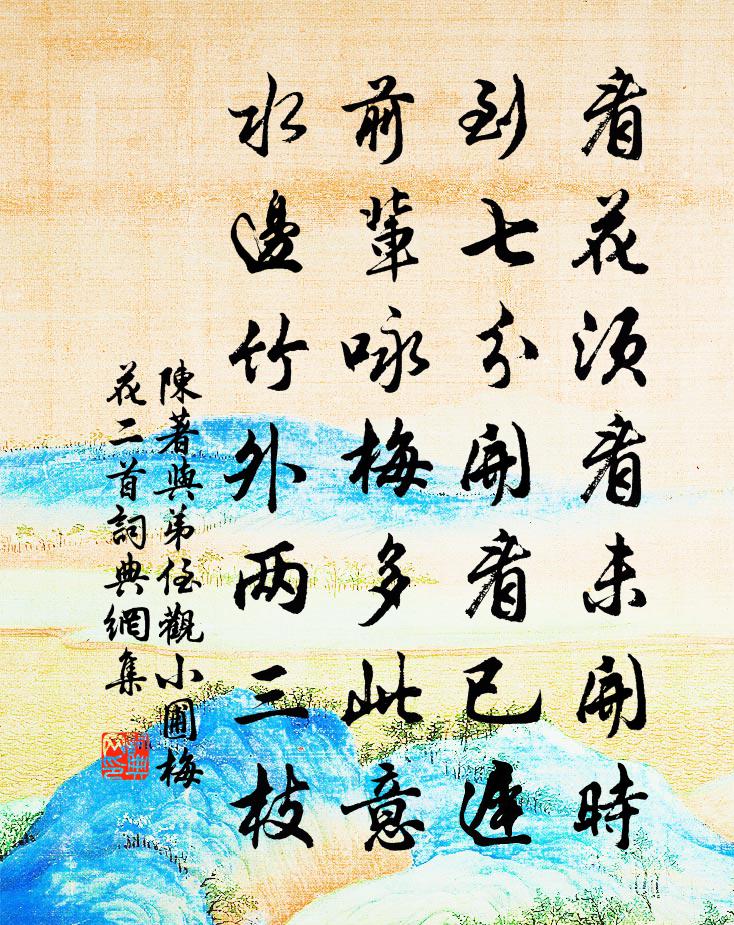 看花須看未開時
到七分開看已遲
前輩咏梅多此意
水邊竹外两三枝
陳著與弟侄觀小圃梅
花二首詞典網集